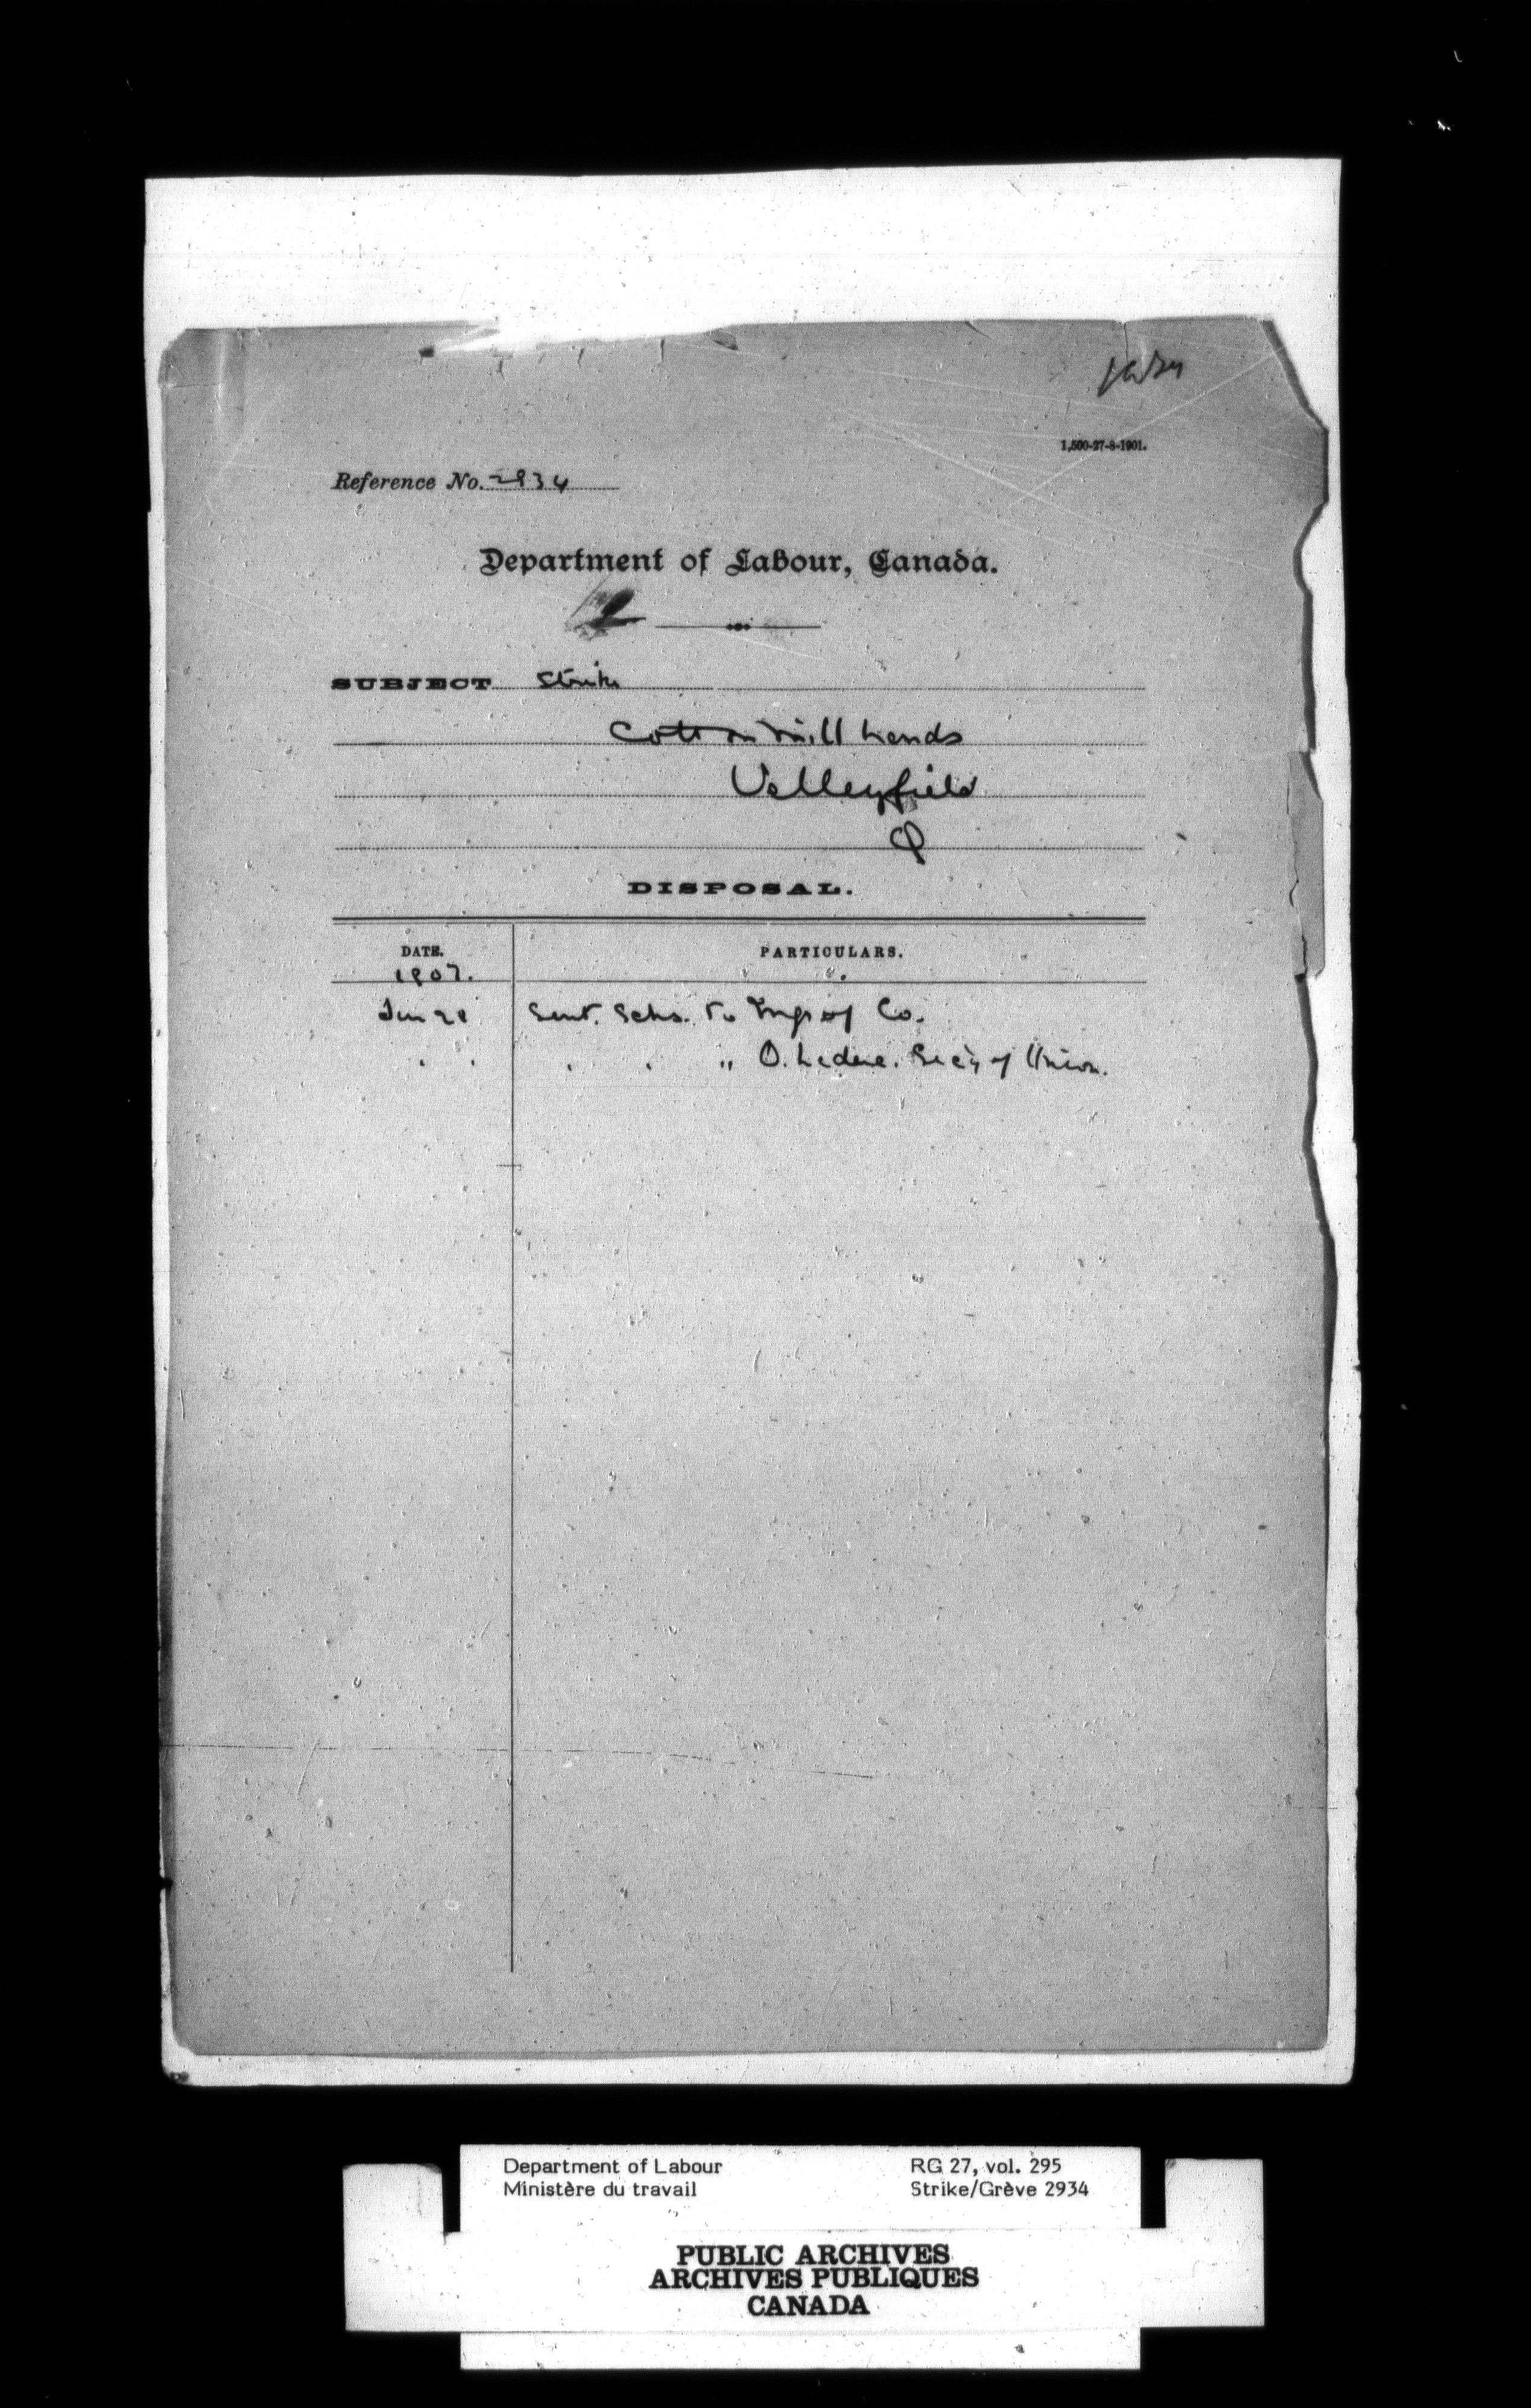 1,500-27-8-1901.
Reference No. 2934
Department of Labour, Canada.
SUBJECT Strike
Cotton mill hands
Valleyfield
Q
DISPOSAL.
DATE. PARTICULARS.
1907.
Sent. Schs. to Mgr of Co.
" O. Leduc. Sec'y of Union.
Department of Labour RG 27, vol. 295
Ministère du travail Strike/Grève 2934
PUBLIC ARCHIVES
ARCHIVES PUBLIQUES
CANADA